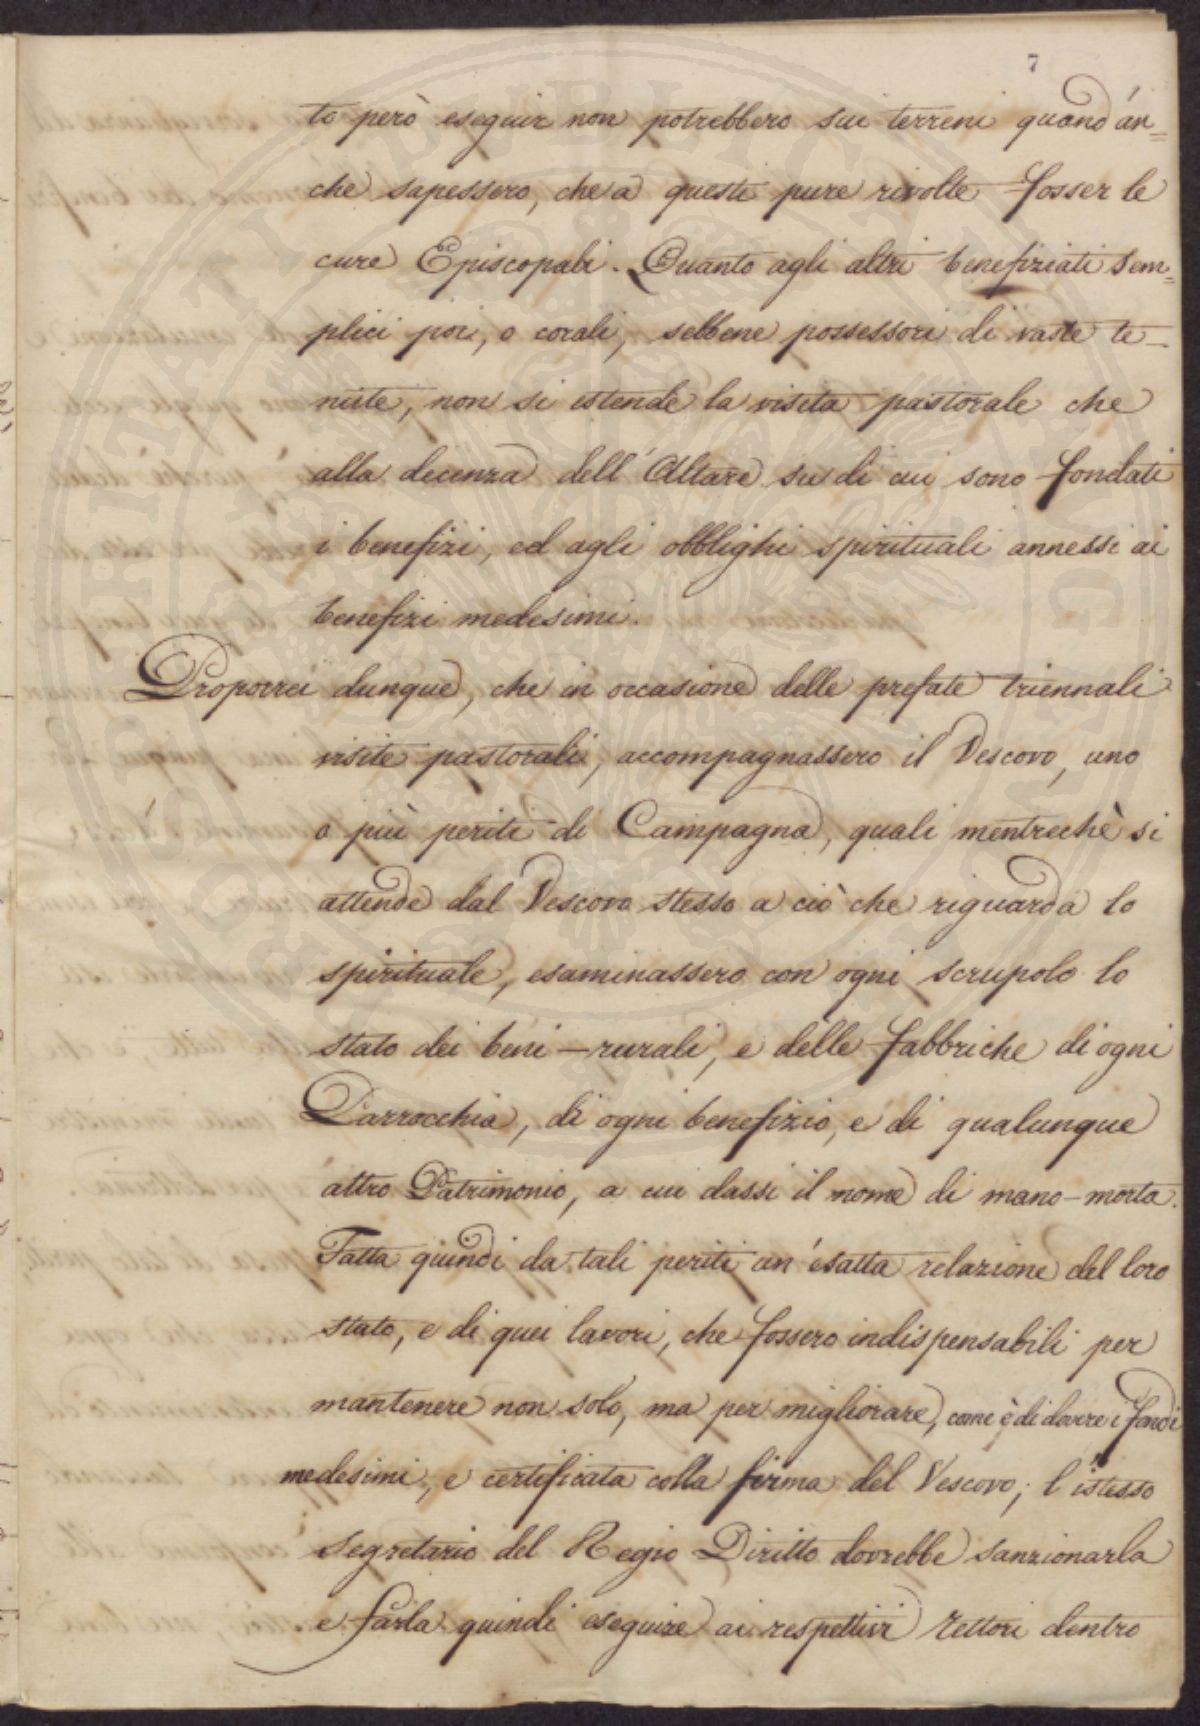 7
to però eseguir non potrebbero sui terreni quand'an=
che sapessero, che a questi pure rivolte fosser le
cure Episcopali. Quanto agli altri benefiziati sem=
plici poi, o corali, sebbene possessori di vaste te-
nute, non si estende la visita pastorale che
alla decenza dell'Altare su di cui sono fondati
i benefizi, ed agli obblighi spirituali annessi ai
benefizi medesimi.
Proporrei dunque, che in occasione delle prefate triennali
visite pastorali, accompagnassero il Vescovo, uno
o più periti di Campagna, quali mentrechè si
attende dal Vescovo stesso a ciò che riguarda lo
spirituale, esaminassero con ogni scrupolo lo
stato dei beni-rurali, e delle fabbriche di ogni
Parrocchia, di ogni benefizio, e di qualunque
altro Patrimonio, a cui dassi il nome di mano-morta.
Fatta quindi da tali periti un'esatta relazione del loro
stato, e di quei lavori, che fossero indispensabili per
mantenere non solo, ma per migliorare, come è di dovere i fondi
medesimi, e certificata colla firma del Vescovo; l'istesso
Segretario del Regio Diritto dovrebbe sanzionarla
e farla quindi eseguire ai respettivi Rettori dentro